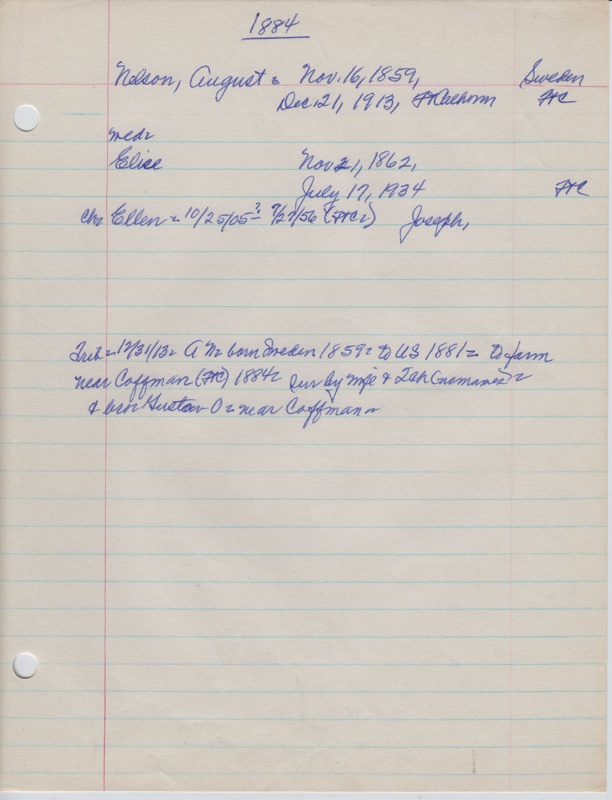 1884
Nelson, August - Nov. 16, 1859, Sweden
Dec. 21, 1913, Ft Calhoun FtC
med -
Elise Nov 21, 1862,
July 17, 1934 FtC
Ch - Ellen - 10/25/05 - ? 7/27/56 (FtC) Joseph,
Trib - 12/31/13 - A N - born Sweden 1859 - to US 1881 - to farm
near Coffman (FtC) 1884 - Sur by wife & 2 ch (no names) -
& bro - Gustav O - near Coffman -